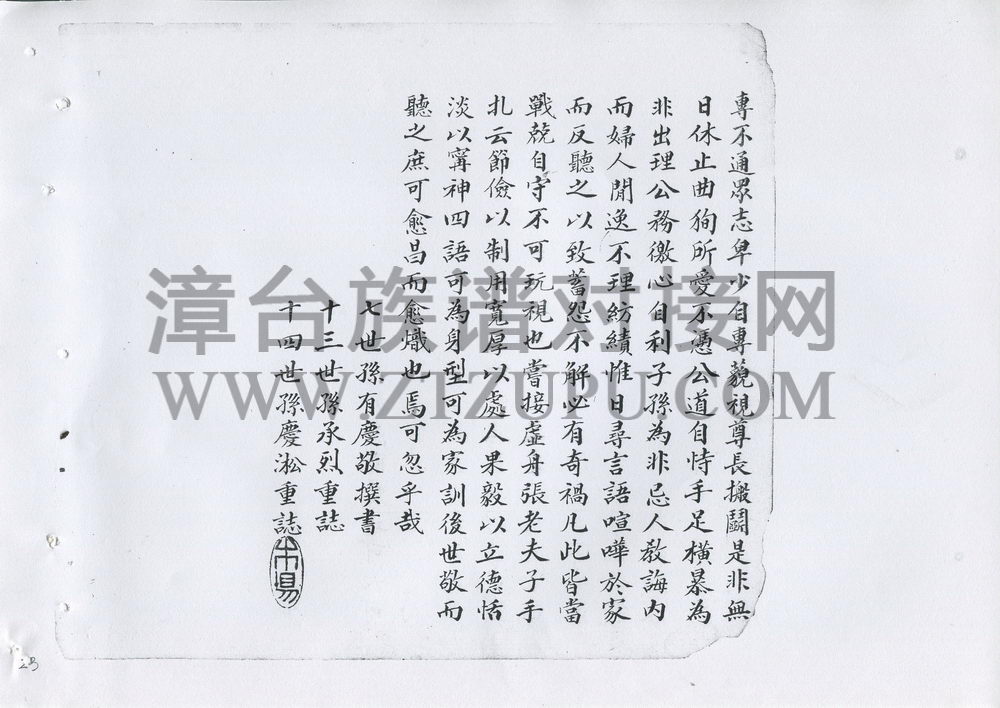 專不通眾志卑少自專藐視尊長搬鬭是非無
日休止曲狥所愛不憑公道自恃手足橫暴為
非出理公務徼心自利子孫為非忌人教誨内
而婦人閒逸不理紡績惟日尋言語喧嘩於家
而反聽之以致蓄怨不解必有奇禍凡此皆當
戰兢自守不可玩視也嘗接虛舟張老夫子手
扎云節儉以制用寬厚以處人果毅以立德恬
淡以寗神四語可為身型可為家訓後世敬而
聽之庶可愈昌而愈熾也焉可忽乎哉
七世孫有慶敬撰書
十三世孫承烈重誌
十四世孫慶淞重誌
漳台族谱对接网
WWW.ZTZUPU.COM
23